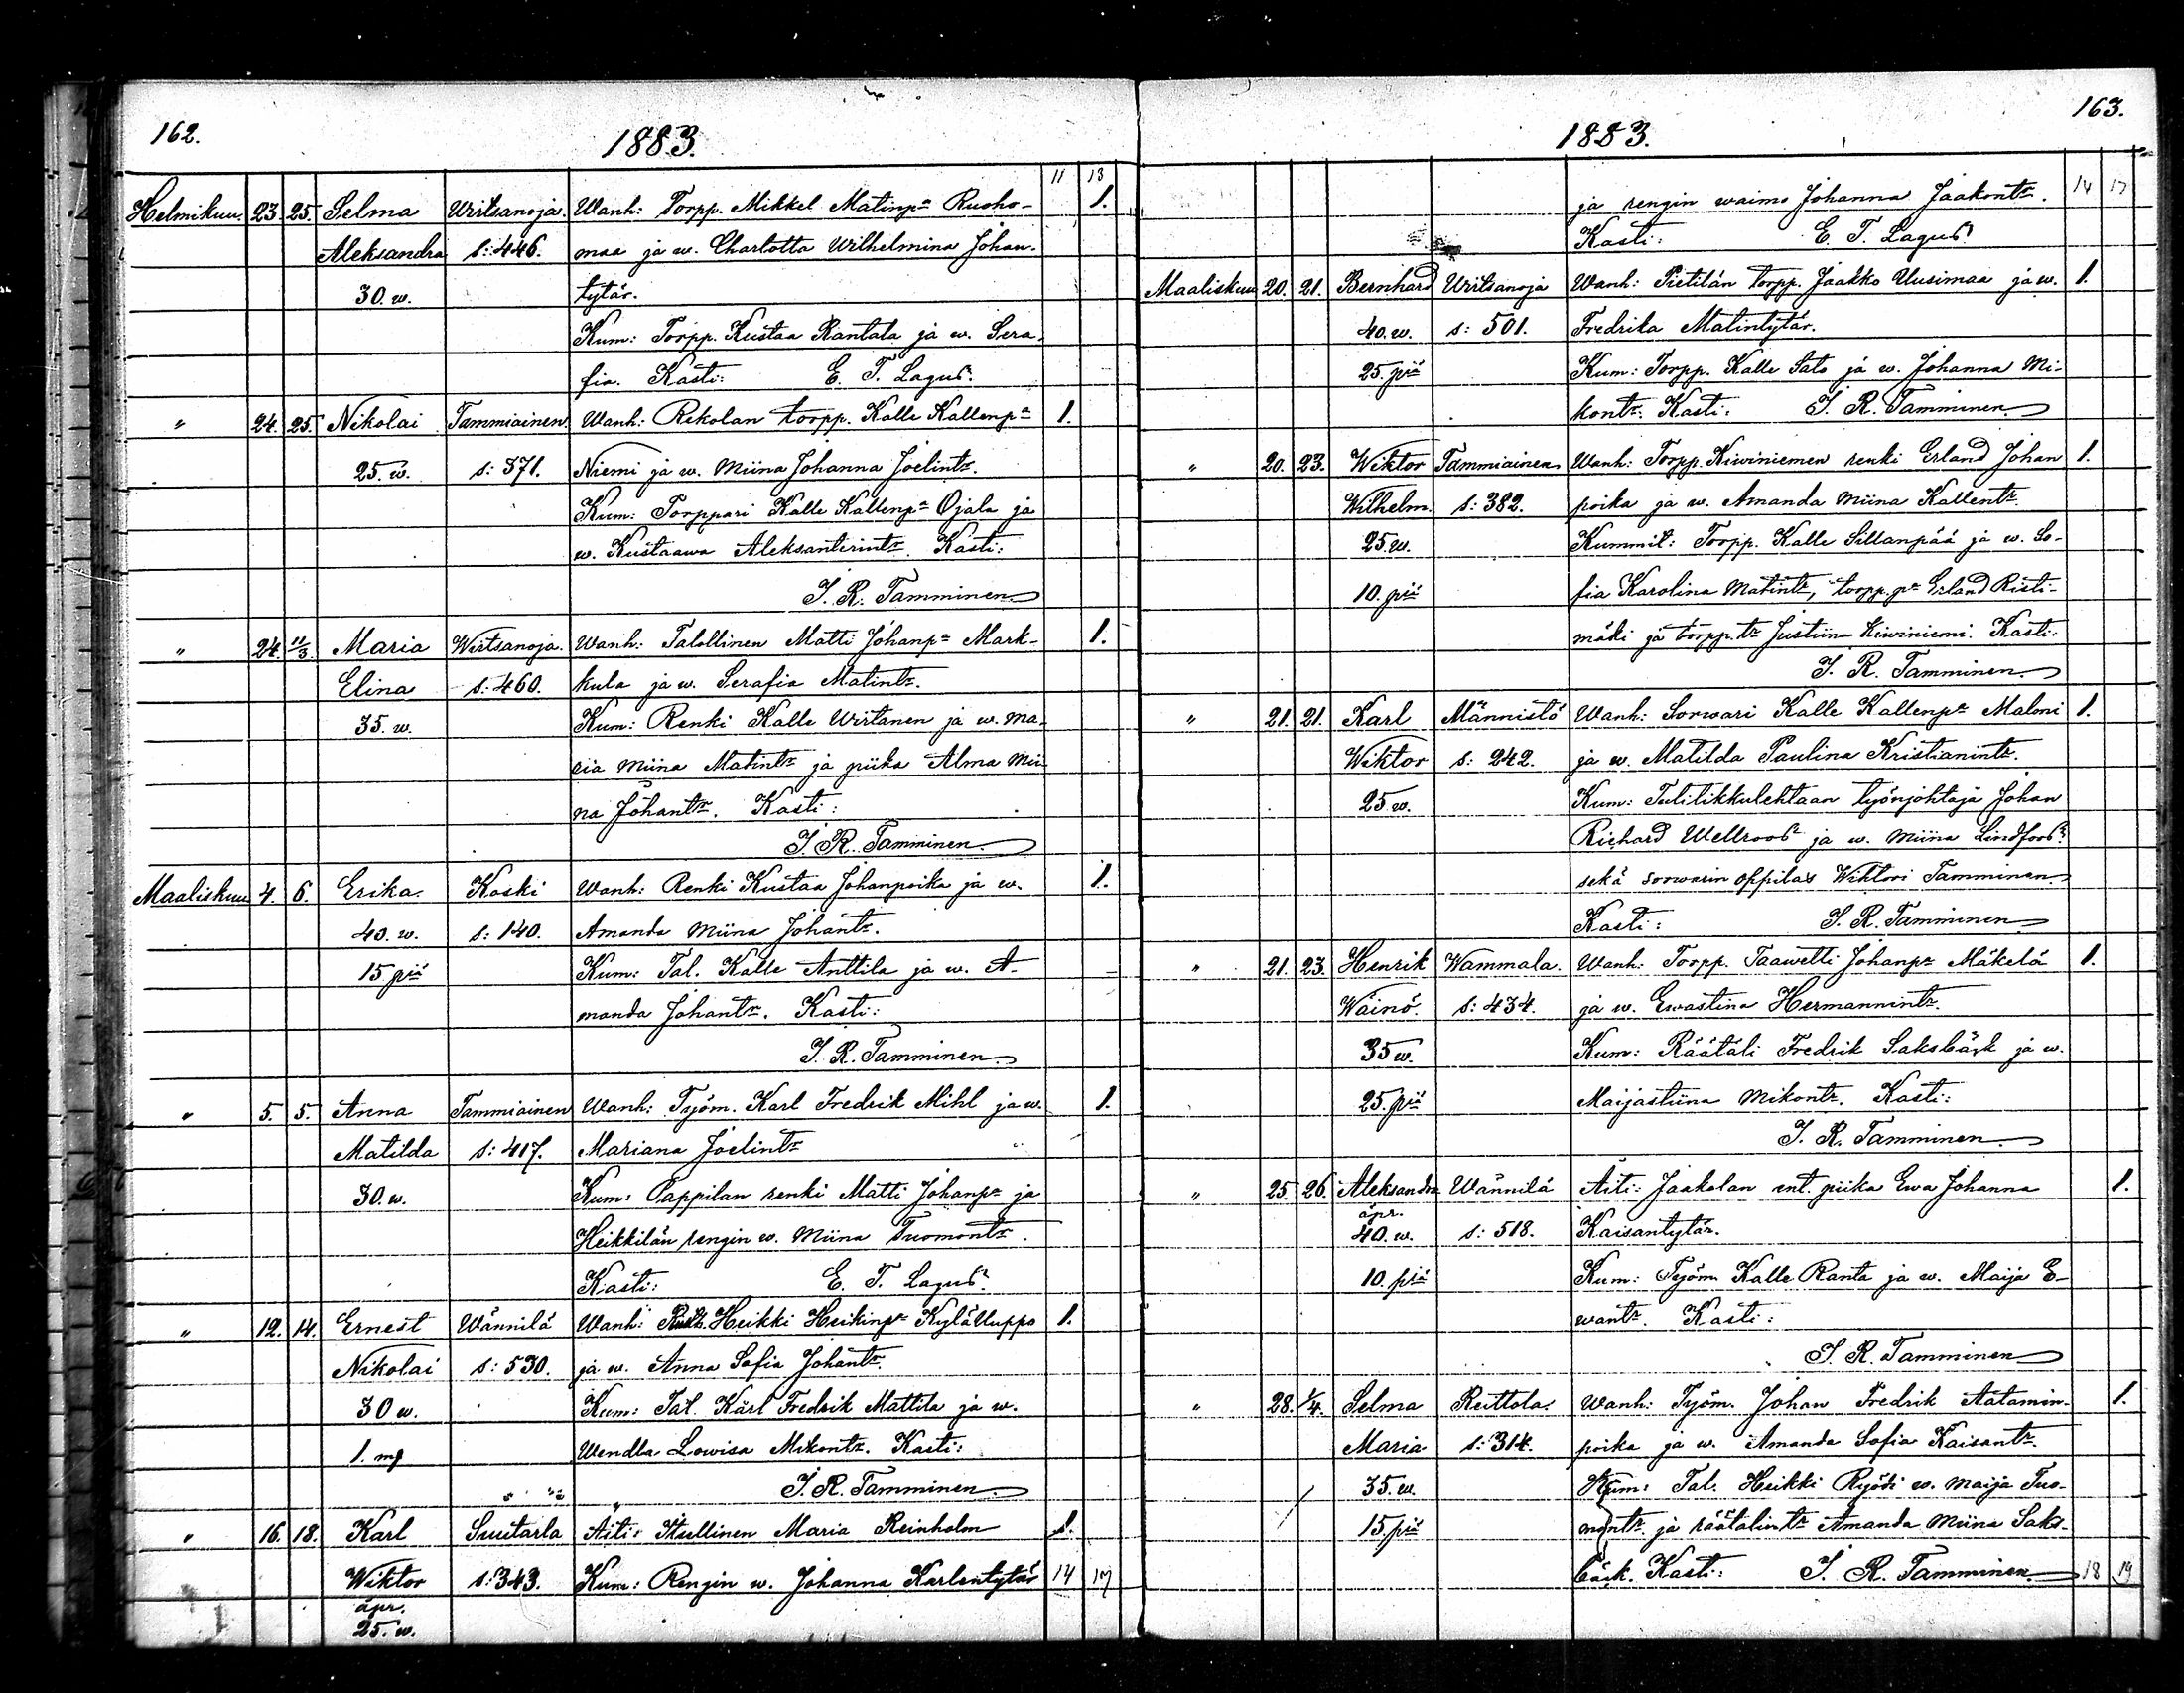 162.
1883.
11 13
Helmikuu. 23. 25. Selma Wirtsanoja. Wanh: Torpp. Mikkel Matinpa Ruoho- 1.
Aleksandra s: 446. maa ja w. Charlotta Wilhelmina Johan-
30. w. tytär.
Kum: Torpp. Kustaa Rantala ja w. Sera-
fia. Kasti: E. T. Lagus.
" 24. 25. Nikolai Tammiainen. Wanh: Rekolan torpp. Kalle Kallenpa 1.
25. w. s: 371. Niemi ja w. Miina Johanna Joelintr.
Kum: Torppari Kalle Kallenpa Ojala ja
w. Kustaawa Aleksanterintr. Kasti:
J. R. Tamminen.
" 24. 11/3. Maria Wirtsanoja. Wanh: Talollinen Matti Johanpa Mark- 1.
Elina s: 460. kula ja w. Serafia Matintr.
35. w. Kum: Renki Kalle Wirtanen ja w. Ma-
ria Miina Matintr ja piika Alma Mii-
na Johantr. Kasti:
J. R. Tamminen.
Maaliskuu 4. 6. Erika. Koski Wanh: Renki Kustaa Johanpoika ja w. 1.
40. w. s: 140. Amanda Miina Johantr.
15 piä Kum: Tal. Kalle Anttila ja w. A-
manda Johantr. Kasti:
J. R. Tamminen.
" 5. 5. Anna Tammiainen Wanh: Työm. Karl Fredrik Mihl ja w. 1.
Matilda s: 417. Mariana Joelintr
30. w. Kum: Pappilan renki Matti Johanpa ja
Heikkilän rengin w. Miina Tuomontr.
Kasti: E. T. Lagus.
" 12. 14. Ernest Wännilä Wanh: Heikki Heikinpa Kylälluppo 1.
Nikolai s: 530. ja w. Anna Sofia Johantr.
30 w. Kum: Tal. Karl Fredrik Mattila ja w.
1. Wendla Lowisa Mikontr. Kasti:
J. R. Tamminen.
" 16. 18. Karl Suutarla Äiti: Itsellinen Maria Reinholm 1.
Wiktor s: 343. Kum: Rengin w. Johanna Karlentytär 14 17
äpr.
25. w.
163.
1883.
14 17
ja rengin waimo Johanna Jaakontr.
Kasti: E. T. Lagus.
Maaliskuu 20. 21. Bernhard Wirtsanoja Wanh: Pietilän torpp. Jaakko Uusimaa ja w. 1.
40. w. s: 501. Fredrika Matintytär.
25. piä Kum: Torpp. Kalle Sato ja w. Johanna Mi-
kontr. Kasti: J. R. Tamminen.
" 20. 23. Wiktor Tammiainen Wanh: Torpp. Kiwiniemen renki Erland Johan 1.
Wilhelm. s: 382. poika ja w. Amanda Miina Kallentr.
25. w. Kummit: Torpp. Kalle Sillanpää ja w. So-
10. piä fia Karolina Matintr, torpp. pa Erland Risti-
mäki ja torpp. tr Justiina Kiwiniemi. Kasti:
J. R. Tamminen.
" 21. 21. Karl Männistö Wanh: Sorwari Kalle Kallenpa Maloni 1.
Wiktor s: 242. ja w. Matilda Paulina Kristianintr.
25. w. Kum: Tulitikkulehtaan työnjohtaja Johan
Richard Wellroos ja w. Miina Lindfors
sekä sorwarin oppilas Wiktori Tamminen.
Kasti: J. R. Tamminen
" 21. 23. Henrik Wammala. Wanh: Torpp. Taawetti Johanpa Mäkelä 1.
Wäinö. s: 434. ja w. Ewastina Hermannintr.
35 w. Kum: Räätäli Fredrik Saksbäck ja w.
25. piä Maijastiina Mikontr. Kasti:
J. R. Tamminen.
" 25. 26. Aleksandra Wännilä Äiti: Jaakolan ent. piika Ewa Johanna 1.
äpr.
40. w. s: 518. Kaisantytär.
10. piä Kum: Työm. Kalle Ranta ja w. Maija E-
wantr. Kasti:
J. R. Tamminen
" 28. 1/4. Selma Reittola. Wanh: Työm. Johan Fredrik Aatamin- 1.
Maria s: 314. poika ja w. Amanda Sofia Kaisantr.
35. w. Kum: Tal. Heikki Ryödi w. Maija Tuo-
15. piä montr ja räätälintr Amanda Miina Saks-
bäck. Kasti: J. R. Tamminen. 18 19